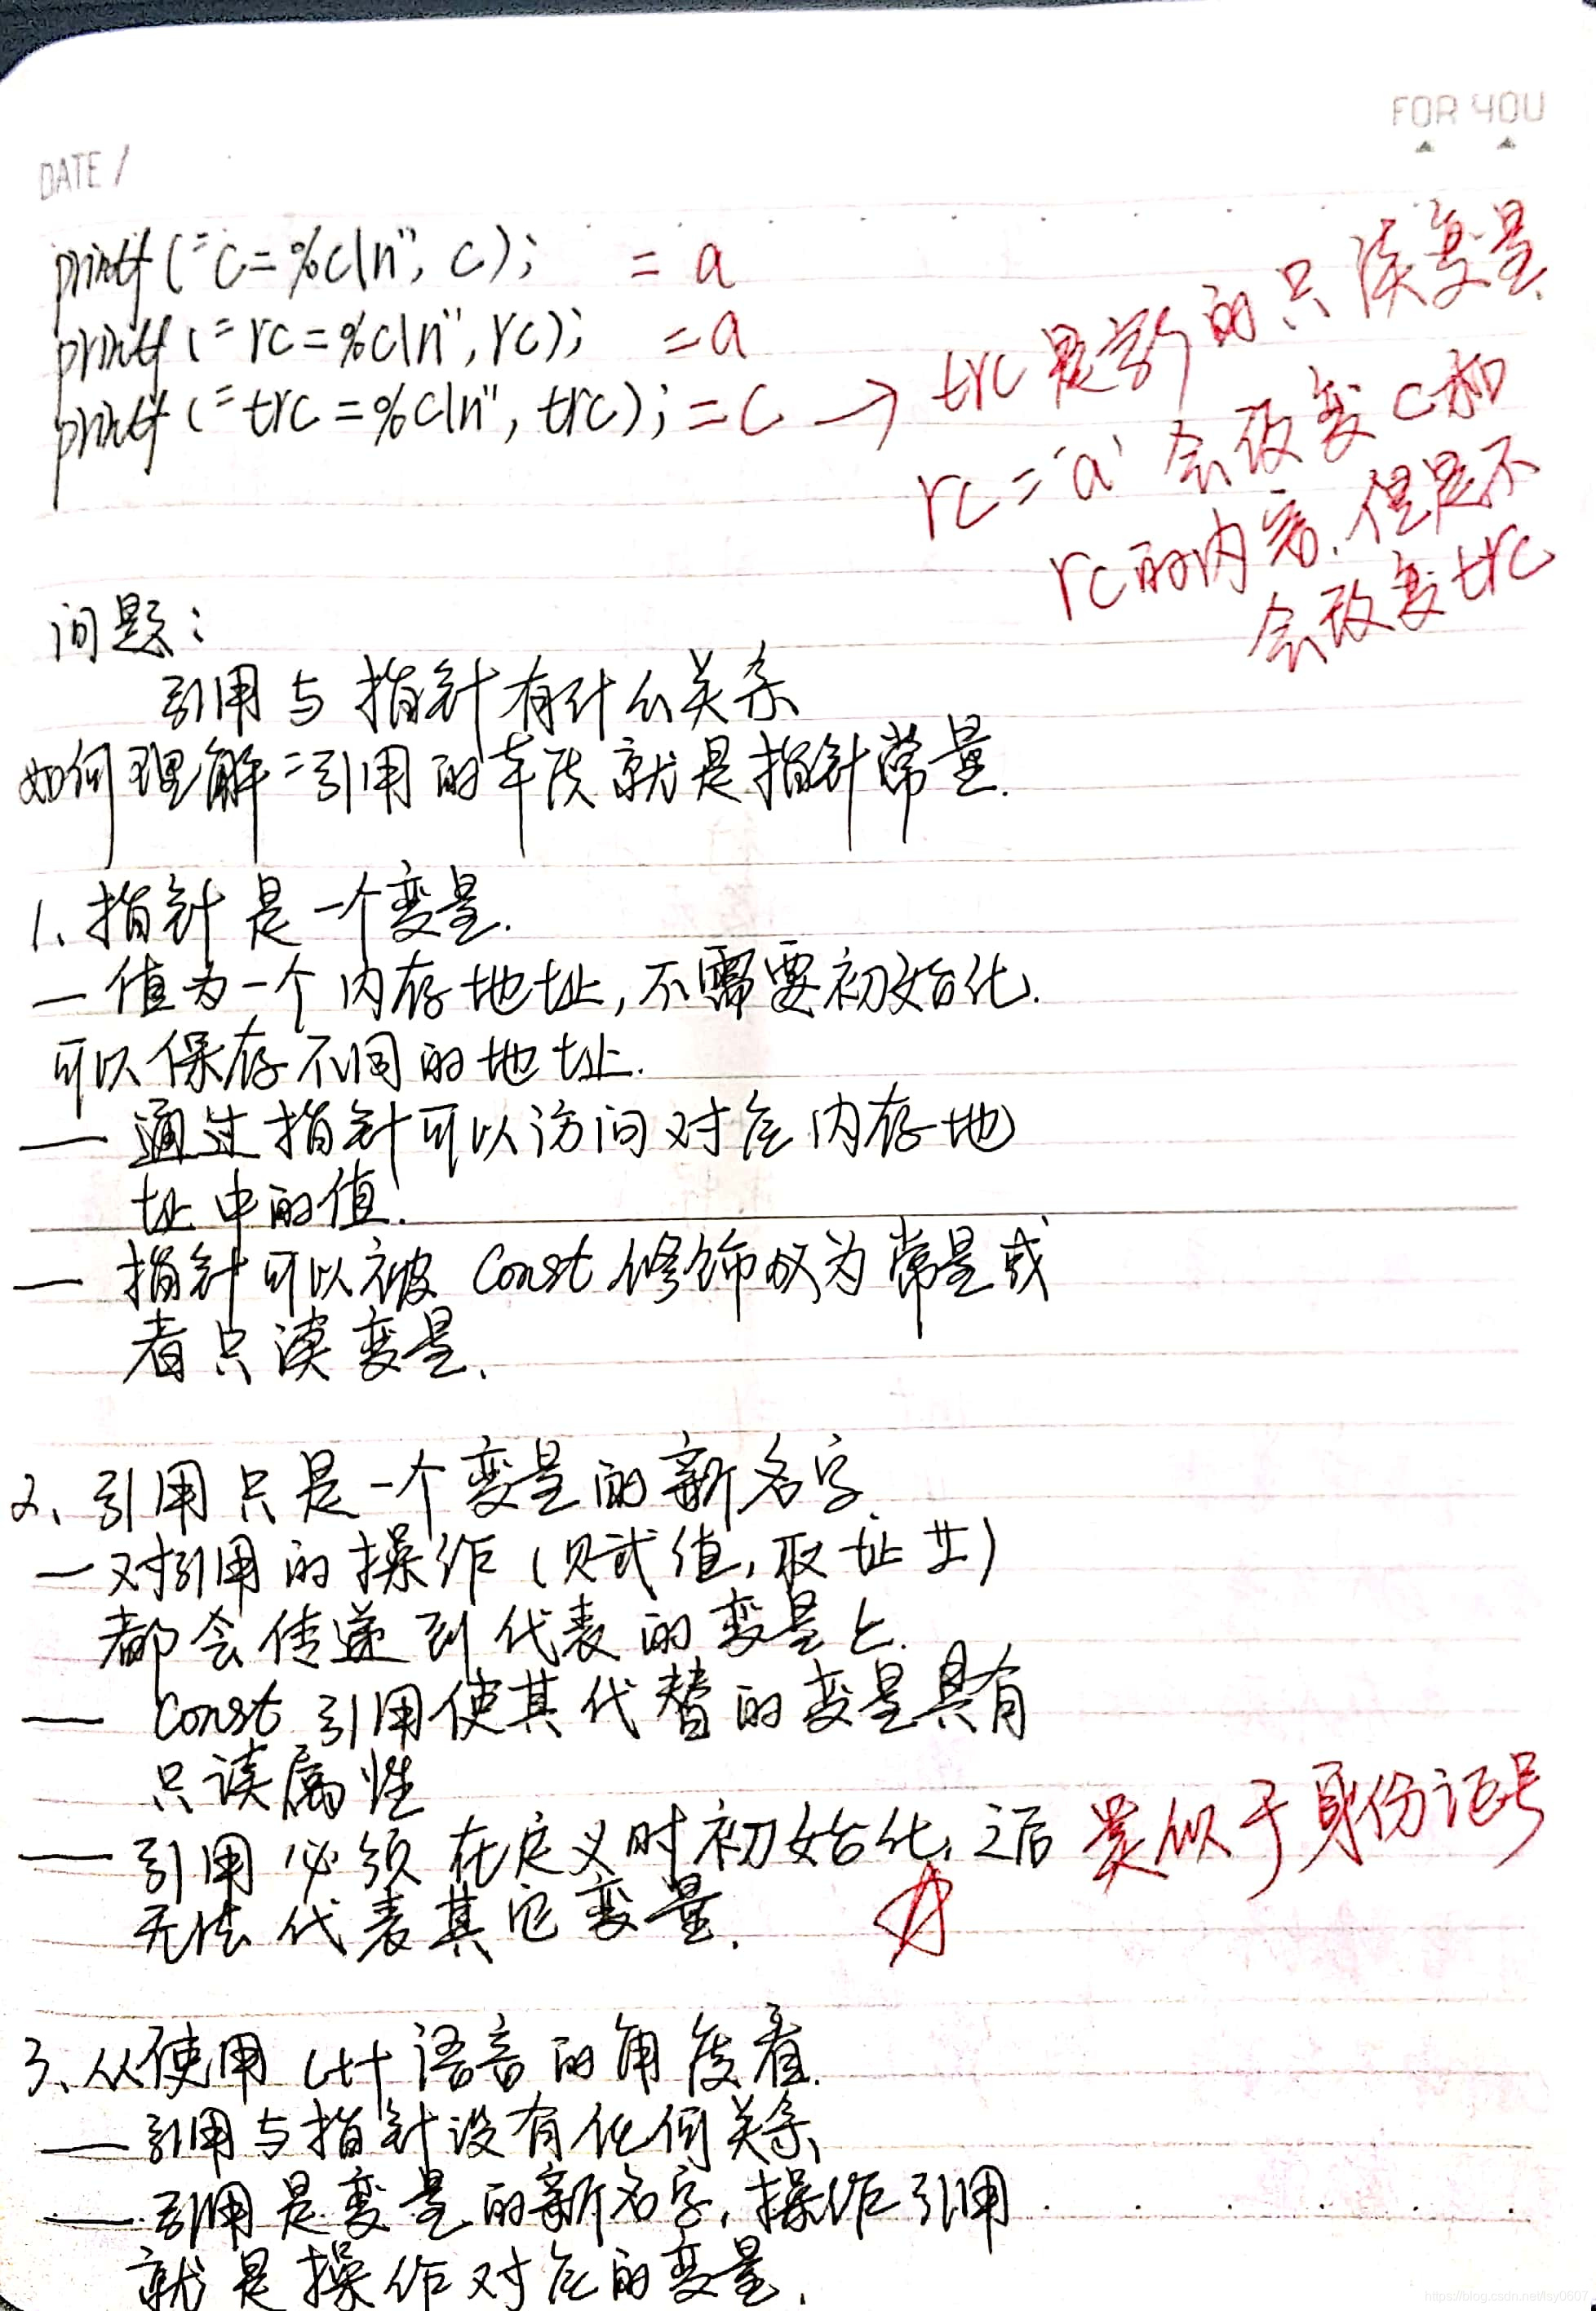 FOR YOU
DATE /
printf("c=%c\n", c); = a
printf("rc=%c\n", rc); = a
printf("trc=%c\n", trc); = c → trc是新的只读变量.
rc='a' 会改变c和
rc的内容,但是不
会改变trc
问题:
引用与指针有什么关系
如何理解"引用的本质就是指针常量.
1、指针是一个变量.
— 值为一个内存地址,不需要初始化.
可以保存不同的地址.
— 通过指针可以访问对应内存地
址中的值.
— 指针可以被 Const 修饰成为常量或
者只读变量.
2、引用只是一个变量的新名字.
— 对引用的操作(赋值,取址等)
都会传递到代表的变量上.
— Const 引用使其代替的变量具有
只读属性
— 引用必须在定义时初始化,之后 类似于身份证号
无法代表其它变量.
3、从使用 C++ 语言的角度看.
— 引用与指针没有任何关系
— 引用是变量的新名字,操作引用
就是操作对应的变量.
https://blog.csdn.net/lsy0607